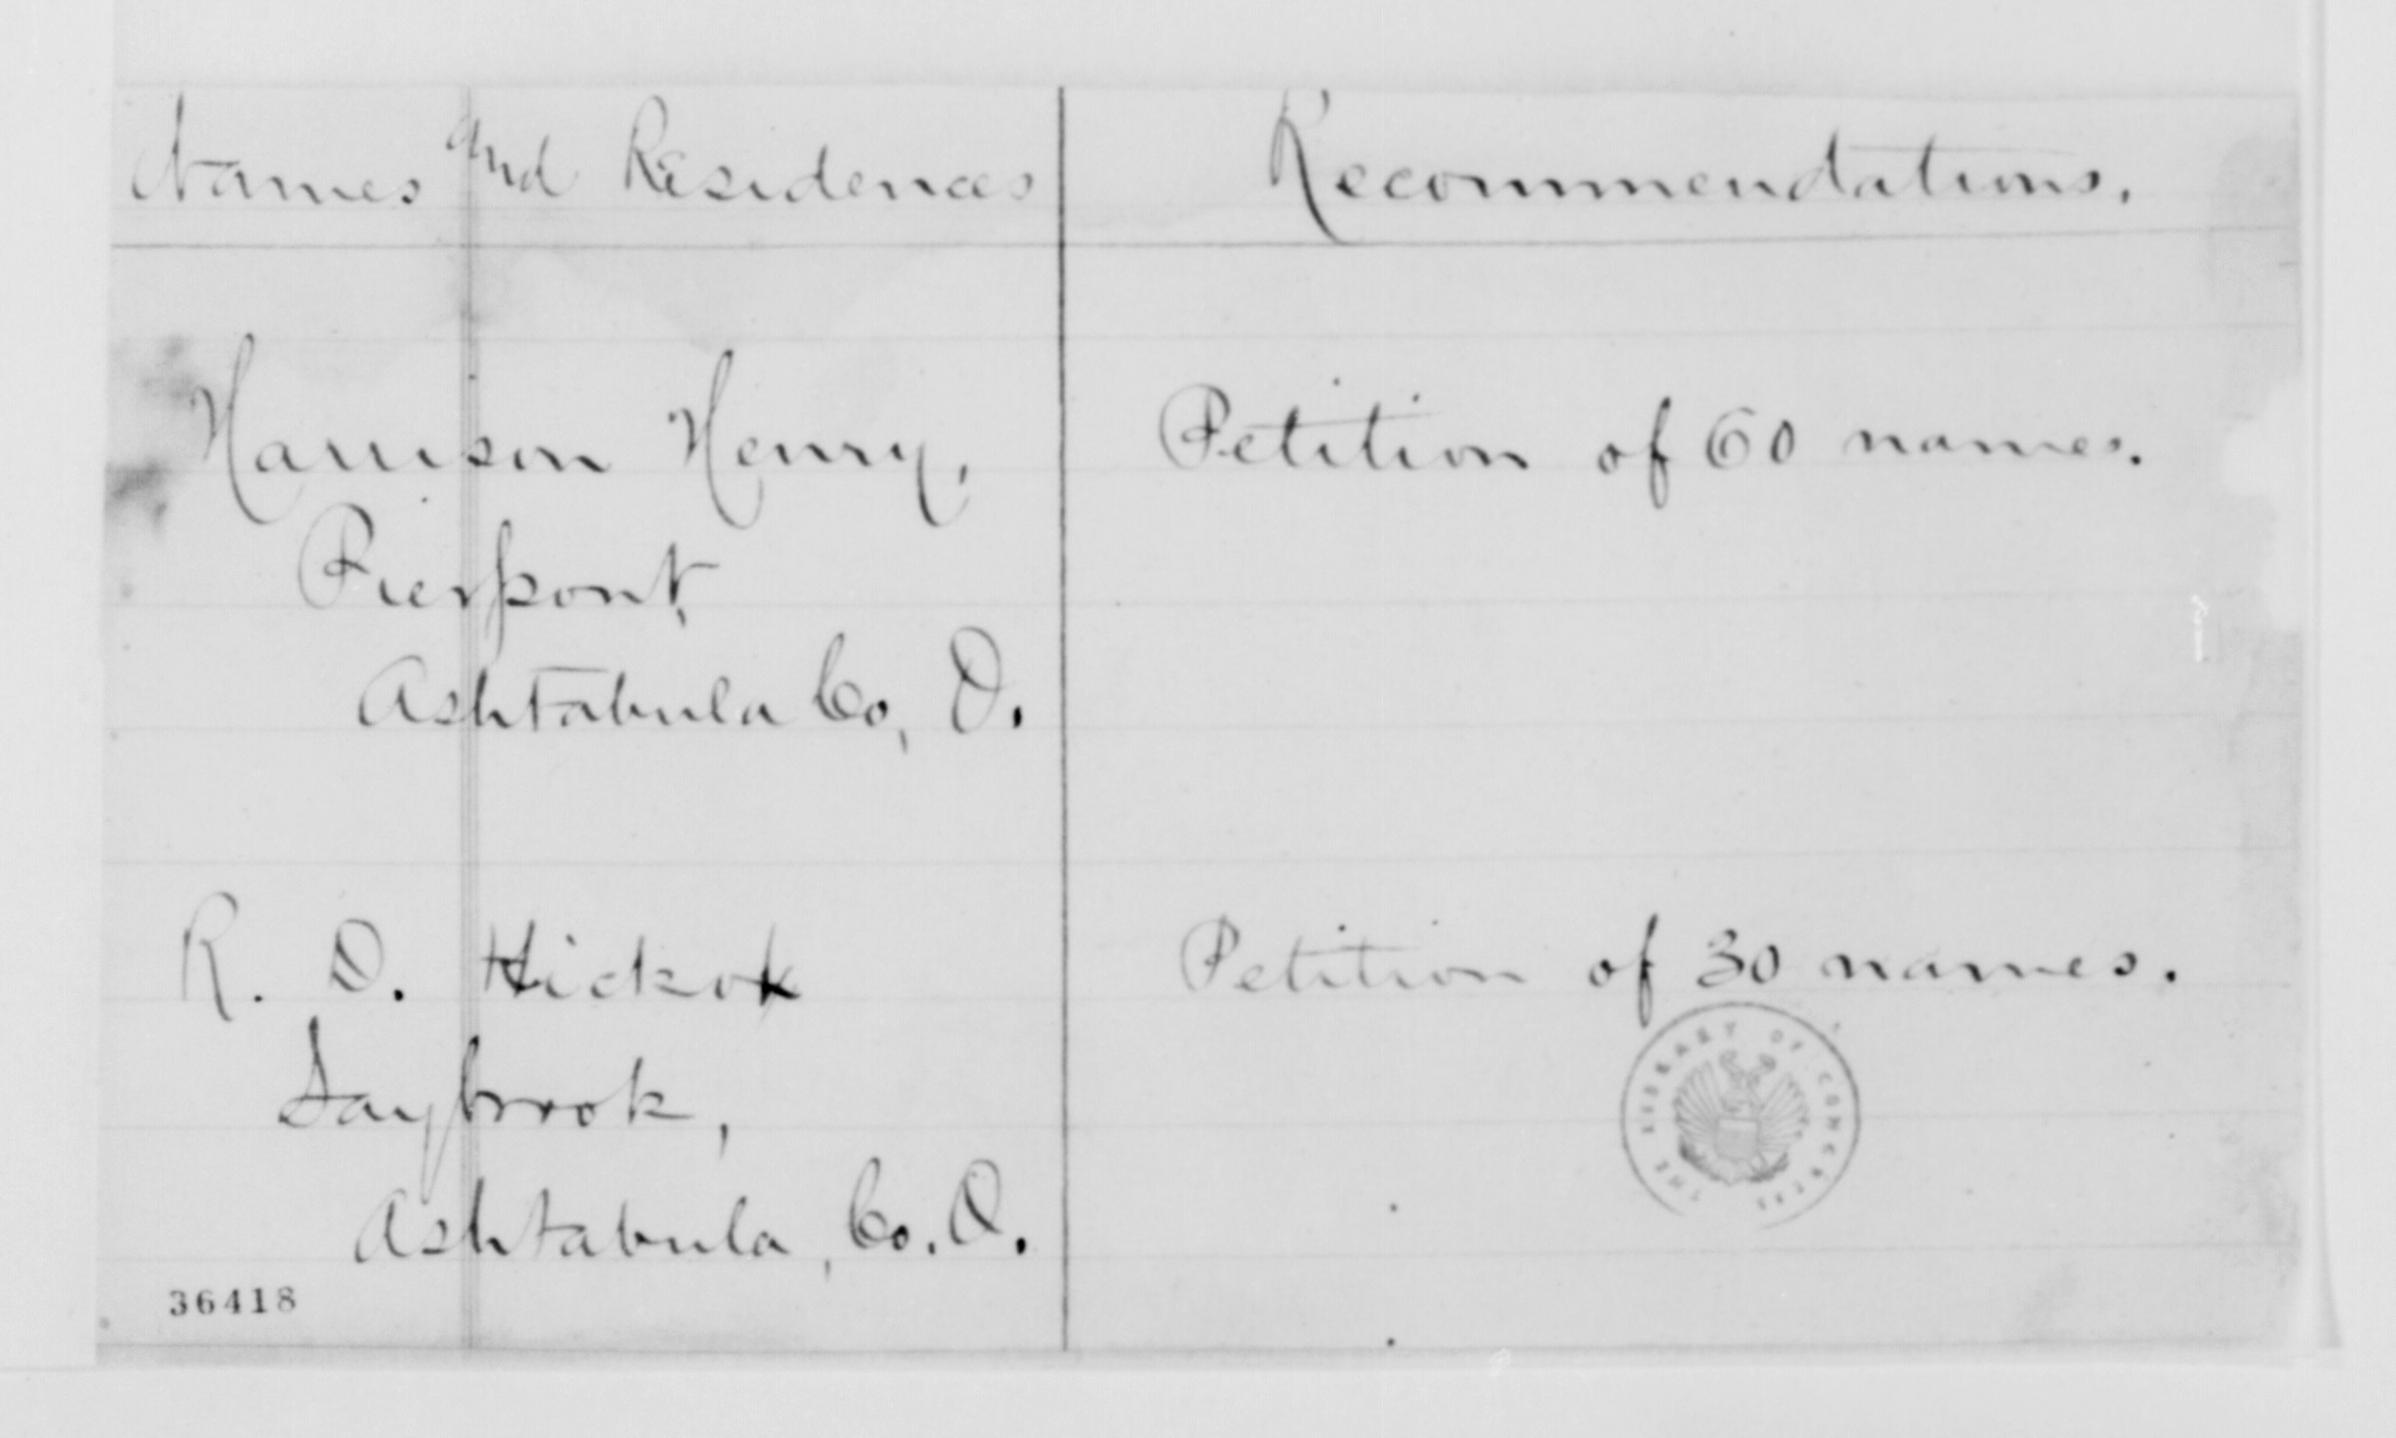 Names and Residences
Recommendations.
Harrison Henry,
Petition of 60 names.
Pierpont,
Ashtabula Co, O.
R. D. Hickok
Petition of 30 names.
Saybrook,
Ashtabula, Co. O.
THE LIBRARY OF CONGRESS
36418